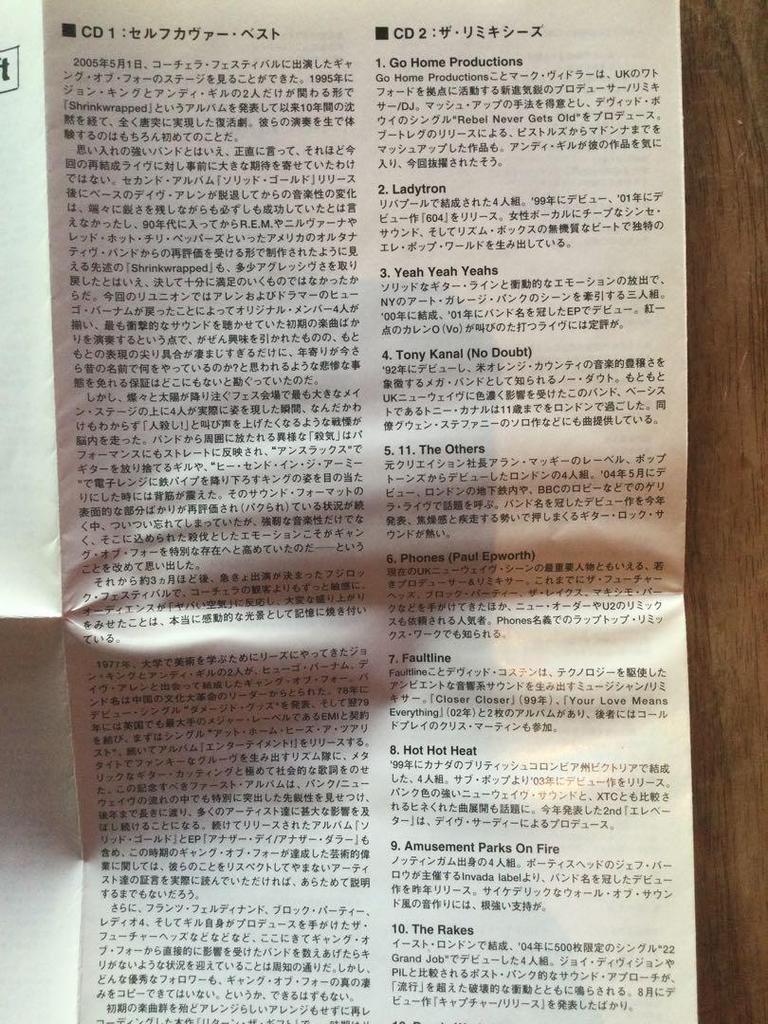 ft
■ CD 1：セルフカヴァー・ベスト
2005年5月1日、コーチェラ・フェスティバルに出演したギャ
ング・オブ・フォーのステージを見ることができた。1995年に
ジョン・キングとアンディ・ギルの2人だけが関わる形で
『Shrinkwrapped』というアルバムを発表して以来10年間の沈
黙を経て、全く唐突に実現した復活劇。彼らの演奏を生で体
験するのはもちろん初めてのことだ。
思い入れの強いバンドとはいえ、正直に言って、それほど今
回の再結成ライヴに対し事前に大きな期待を寄せていたわけ
ではない。セカンド・アルバム『ソリッド・ゴールド』リリース
後にベースのデイヴ・アレンが脱退してからの音楽性の変化
は、端々に鋭さを残しながらも必ずしも成功していたとは言
えなかったし、90年代に入ってからR.E.M.やニルヴァーナや
レッド・ホット・チリ・ペッパーズといったアメリカのオルタナ
ティヴ・バンドからの再評価を受ける形で制作されたように見
える先述の『Shrinkwrapped』も、多少アグレッシヴさを取り
戻したとはいえ、決して十分に満足のいくものではなかったか
らだ。今回のリユニオンではアレンおよびドラマーのヒュー
ゴ・バーナムが戻ったことによってオリジナル・メンバー4人が
揃い、最も衝撃的なサウンドを聴かせていた初期の楽曲ばか
りを演奏するという点で、がぜん興味を引かれたものの、もと
もとの表現の尖り具合が凄まじすぎるだけに、年寄りが今さ
ら昔の名前で何をやっているのか?と思われるような悲惨な事
態を免れる保証はどこにもないと勘ぐっていたのだ。
しかし、燦々と太陽が降り注ぐフェス会場で最も大きなメイ
ン・ステージの上に4人が実際に姿を現した瞬間、なんだかわ
けもわからず「人殺し!」と叫び声を上げたくなるような戦慄が
脳内を走った。バンドから周囲に放たれる異様な「殺気」はパ
フォーマンスにもストレートに反映され、“アンスラックス”で
ギターを放り捨てるギルや、“ヒー・センド・イン・ジ・アーミー
”で電子レンジに鉄パイプを降り下ろすキングの姿を目の当た
りにした時には背筋が震えた。そのサウンド・フォーマットの
表面的な部分ばかりが再評価され(パクられ)ている状況が続
く中、ついつい忘れてしまっていたが、強靭な音楽性だけでな
く、そこに込められた殺伐としたエモーションこそがギャン
グ・オブ・フォーを特別な存在へと高めていたのだ――という
ことを改めて思い出した。
それから約3ヵ月ほど後、急きょ出演が決まったフジロッ
ク・フェスティバルで、コーチェラの観客よりもずっと敏感に、
オーディエンスが「ヤバい空気」に反応し、大変な盛り上がり
をみせたことは、本当に感動的な光景として記憶に焼き付い
ている。
1977年、大学で美術を学ぶためにリーズにやってきたジョ
ン・キングとアンディ・ギルの2人が、ヒューゴ・バーナム、デ
イヴ・アレンと出会って結成したギャング・オブ・フォー。バ
ンド名は中国の文化大革命のリーダーからとられた。78年に
デビュー・シングル“ダメージド・グッズ”を発表、そして翌79
年には英国でも最大手のメジャー・レーベルであるEMIと契約
を結び、まずはシングル“アット・ホーム・ヒーズ・ア・ツアリ
スト”、続いてアルバム『エンターテイメント!』をリリースする。
タイトでファンキーなグルーヴを生み出すリズム隊に、メタ
リックなギター・カッティングと極めて社会的な歌詞をのせ
た、この記念すべきファースト・アルバムは、パンク/ニュー
ウェイヴの流れの中でも特別に突出した先鋭性を見せつけ、
後年まで長きに渡り、多くのアーティスト達に甚大な影響を及
ぼし続けることになる。続けてリリースされたアルバム『ソ
リッド・ゴールド』とEP『アナザー・デイ/アナザー・ダラー』も
含め、この時期のギャング・オブ・フォーが達成した芸術的偉
業に関しては、彼らのことをリスペクトしてやまないアーティ
スト達の証言を実際に読んでいただければ、あらためて説明
するまでもないだろう。
さらに、フランツ・フェルディナンド、ブロック・パーティー、
レディオ4、そしてギル自身がプロデュースを手がけたザ・
フューチャーヘッズなどなどなど、ここにきてギャング・オ
ブ・フォーから直接的に影響を受けたバンドを数えあげたらキ
リがないような状況を迎えていることは周知の通りだ。しかし、
どんな優秀なフォロワーも、ギャング・オブ・フォーの真の凄
みをコピーできてはいない。というか、できるはずもない。
初期の楽曲群を殆どアレンジらしいアレンジもせずに再レ
■ CD 2：ザ・リミキシーズ
1. Go Home Productions
Go Home Productionsことマーク・ヴィドラーは、UKのワト
フォードを拠点に活動する新進気鋭のプロデューサー/リミキ
サー/DJ。マッシュ・アップの手法を得意とし、デヴィッド・ボ
ウイのシングル“Rebel Never Gets Old”をプロデュース。
ブートレグのリリースによる、ピストルズからマドンナまでを
マッシュアップした作品も。アンディ・ギルが彼の作品を気に
入り、今回抜擢されたそう。
2. Ladytron
リバプールで結成された4人組。'99年にデビュー、'01年にデ
ビュー作『604』をリリース。女性ボーカルにチープなシンセ・
サウンド、そしてリズム・ボックスの無機質なビートで独特の
エレ・ポップ・ワールドを生み出している。
3. Yeah Yeah Yeahs
ソリッドなギター・ラインと衝動的なエモーションの放出で、
NYのアート・ガレージ・パンクのシーンを牽引する三人組。
'00年に結成、'01年にバンド名を冠したEPでデビュー。紅一
点のカレンO(Vo)が叫びのた打つライヴには定評が。
4. Tony Kanal (No Doubt)
'92年にデビューし、米オレンジ・カウンティの音楽的豊穣さを
象徴するメガ・バンドとして知られるノー・ダウト。もともと
UKニューウェイヴに色濃く影響を受けたこのバンド、ベーシス
トであるトニー・カナルは11歳までをロンドンで過ごした。同
僚グウェン・ステファニーのソロ作などにも曲提供している。
5. 11. The Others
元クリエイション社長アラン・マッギーのレーベル、ポップ
トーンズからデビューしたロンドンの4人組。'04年5月にデ
ビュー、ロンドンの地下鉄内や、BBCのロビーなどでのゲリ
ラ・ライヴで話題を呼ぶ。バンド名を冠したデビュー作を今年
発表、焦燥感と疾走する勢いで押しまくるギター・ロック・サ
ウンドが熱い。
6. Phones (Paul Epworth)
現在のUKニューウェイヴ・シーンの最重要人物ともいえる、若
きプロデューサー&リミキサー。これまでにザ・フューチャー
ヘッズ、ブロック・パーティー、ザ・レイクス、マキシモ・パー
クなどを手がけてきたほか、ニュー・オーダーやU2のリミックス
も依頼される人気者。Phones名義でのラップトップ・リミッ
クス・ワークでも知られる。
7. Faultline
Faultlineことデヴィッド・コステンは、テクノロジーを駆使した
アンビエントな音響系サウンドを生み出すミュージシャン/リミ
キサー。『Closer Colder』(99年)、『Your Love Means
Everything』(02年)と2枚のアルバムがあり、後者にはコール
ドプレイのクリス・マーティンも参加。
8. Hot Hot Heat
'99年にカナダのブリティッシュコロンビア州ビクトリアで結成
した、4人組。サブ・ポップより'03年にデビュー作をリリース。
パンク色の強いニューウェイヴ・サウンドと、XTCとも比較さ
れるヒネくれた曲展開も話題に。今年発表した2nd『エレベー
ター』は、デイヴ・サーディーによるプロデュース。
9. Amusement Parks On Fire
ノッティンガム出身の4人組。ポーティスヘッドのジェフ・バー
ロウが主催するInvada labelより、バンド名を冠したデビュー
作を昨年リリース。サイケデリックなウォール・オブ・サウン
ド風の音作りには、根強い支持が。
10. The Rakes
イースト・ロンドンで結成、'04年に500枚限定のシングル“22
Grand Job”でデビューした4人組。ジョイ・ディヴィジョンや
PILと比較されるポスト・パンク的なサウンド・アプローチが、
「流行」を超えた破壊的な衝動とともに鳴らされる。8月にデ
ビュー作『キャプチャー/リリース』を発表したばかり。